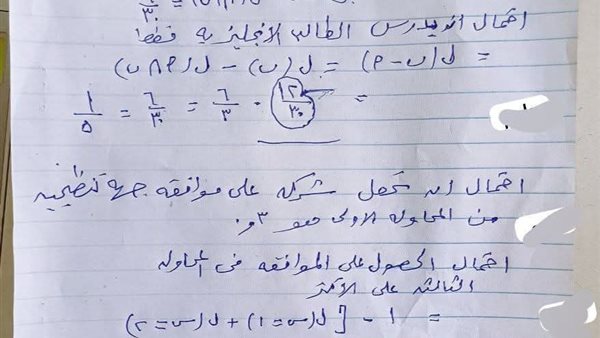 احتمال ان يدرس الطالب الانجليزيه فقط
= ل(ب - P) = ل(ب) - ل(P ∩ ب)
= ١٢/٣٠ - ٦/٣ = ٦/٣٠ = ١/٥
احتمال ان تحصل شركه على موافقه جهه تنظيميه
من المحاوله الاولى هو ٣و٠
احتمال الحصول على الموافقه فى المحاوله
الثالثه على الأكثر
= ١ - [ل(س=١) + ل(س=٢)